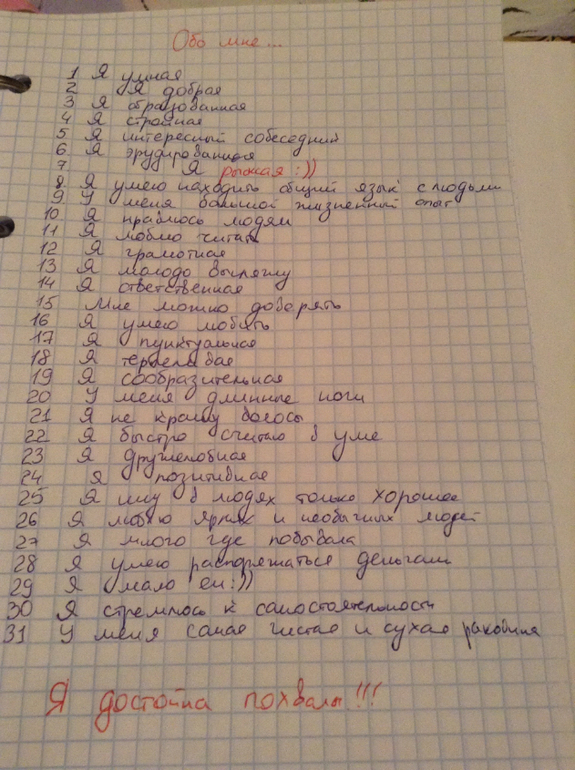 Обо мне...
1 Я умная
2 Я добрая
3 Я образованная
4 Я стройная
5 Я интересный собеседник
6 Я эрудированная
7 Я рыжая :))
8 Я умею находить общий язык с людьми
9 У меня большой жизненный опыт
10 Я нравлюсь людям
11 Я люблю читать
12 Я грамотная
13 Я молодо выгляжу
14 Я ответственная
15 Мне можно доверять
16 Я умею любить
17 Я пунктуальная
18 Я терпеливая
19 Я сообразительная
20 У меня длинные ноги
21 Я не крашу волосы
22 Я быстро считаю в уме
23 Я дружелюбная
24 Я позитивная
25 Я ищу в людях только хорошее
26 Я люблю ярких и необычных людей
27 Я много где побывала
28 Я умею распоряжаться деньгами
29 Я мало ем :))
30 Я стремлюсь к самостоятельности
31 У меня самая чистая и сухая раковина
Я достойна похвалы!!!